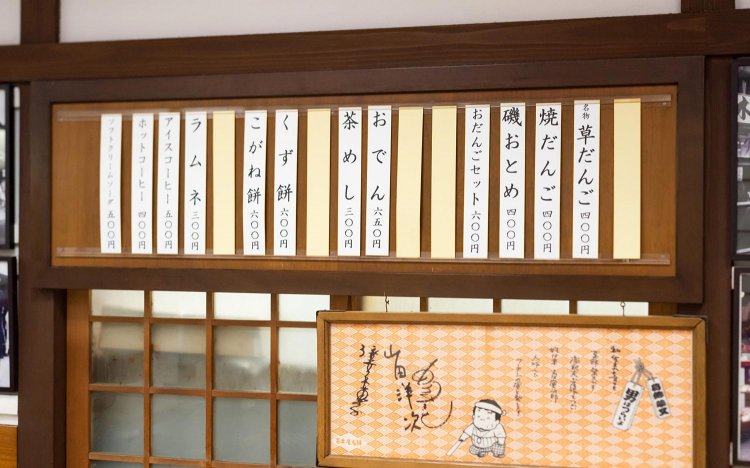 名物 草だんご 四〇〇円
焼だんご 四〇〇円
磯おとめ 四〇〇円
おだんごセット 六〇〇円
おでん 六五〇円
茶めし 三〇〇円
くず餅 六〇〇円
こがね餅 六〇〇円
ラムネ 三〇〇円
アイスコーヒー 五〇〇円
ホットコーヒー 四〇〇円
ソフトクリームソーダ 五〇〇円
男はつらいよ
山田洋次